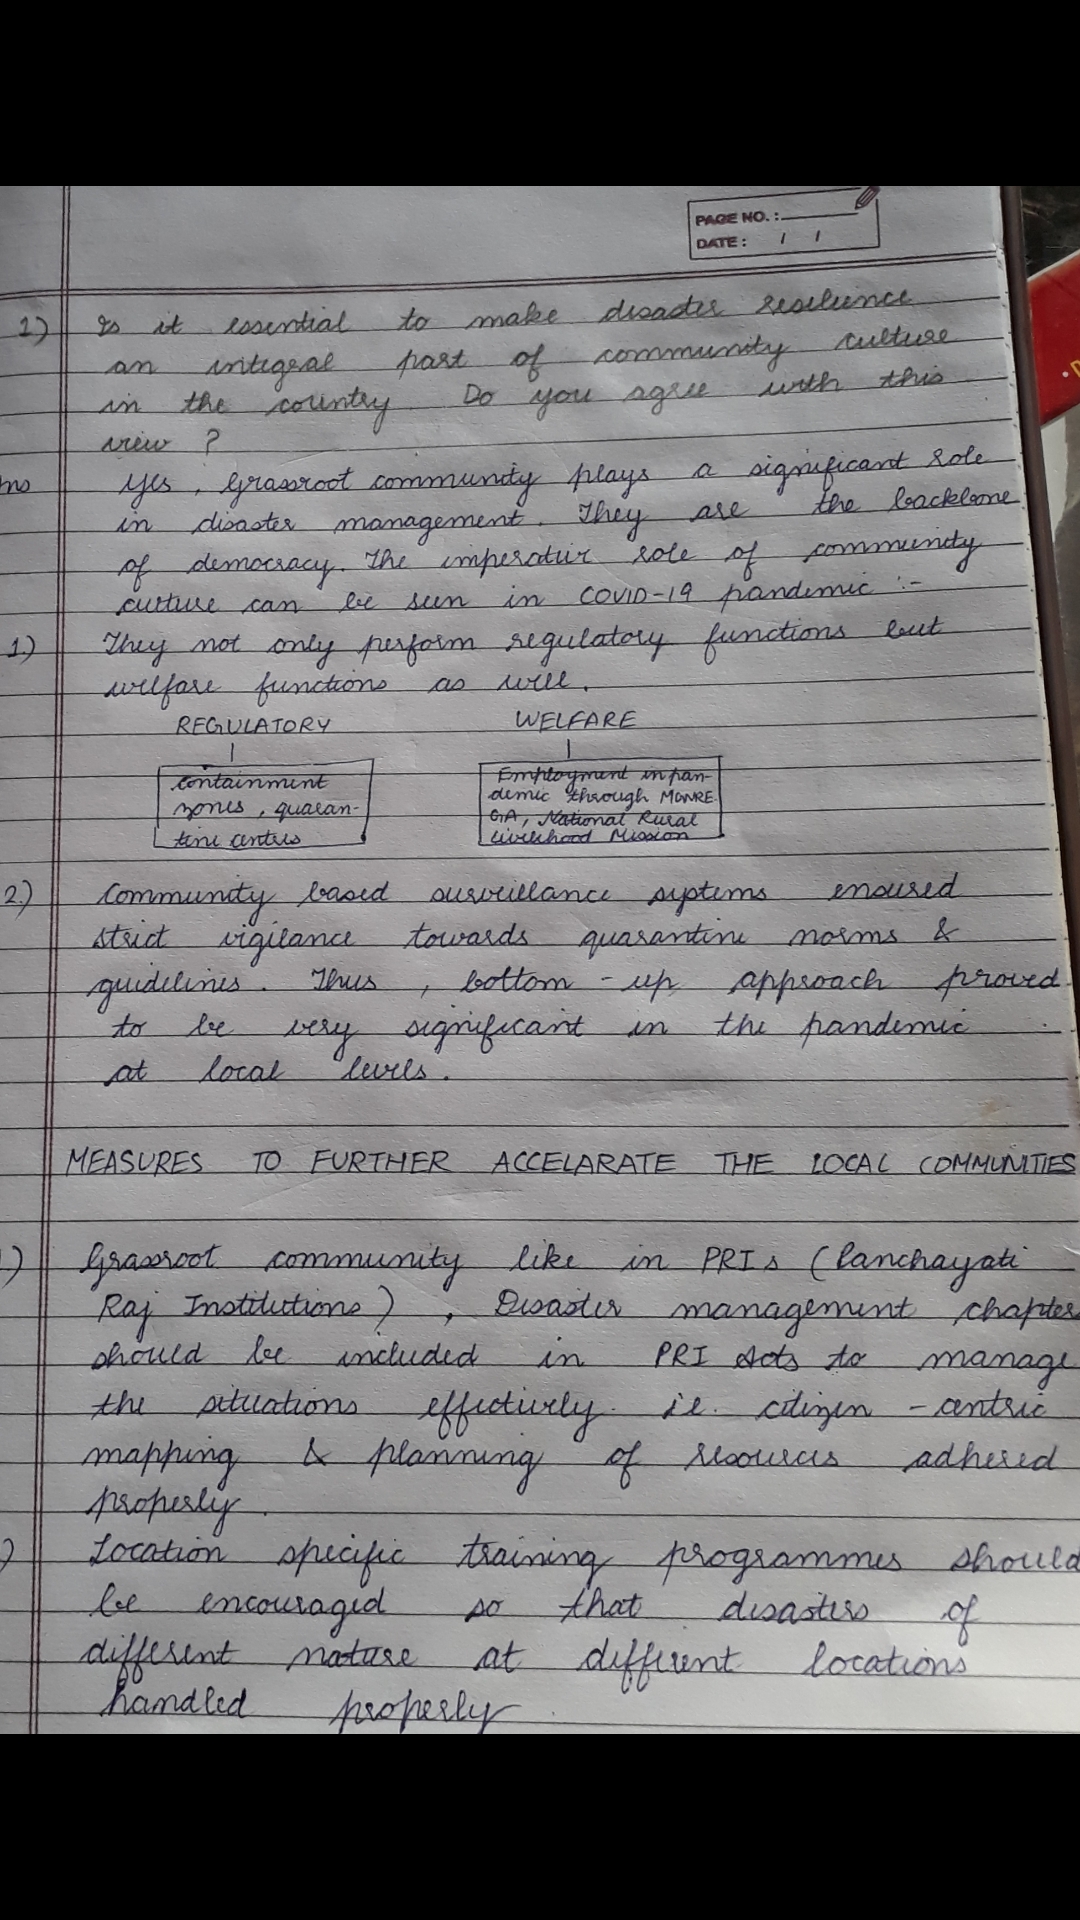 PAGE NO.:
DATE: / /
1) Is it essential to make disaster resilience
an integral part of community culture
in the country. Do you agree with this
view ?
Ans Yes, Grassroot community plays a significant role
in disaster management. They are the backbone
of democracy. The imperative role of community
culture can be seen in COVID-19 pandemic :-
1.) They not only perform regulatory functions but
welfare functions as well.
REGULATORY
Containment
zones, quaran-
tine centers
WELFARE
Employment in pan-
demic through MGNRE
GA, National Rural
Livelihood Mission
2.) Community based surveillance systems ensured
strict vigilance towards quarantine norms &
guidelines. Thus, bottom-up approach proved
to be very significant in the pandemic
at local levels.
MEASURES TO FURTHER ACCELARATE THE LOCAL COMMUNITIES
) Grassroot community like in PRIs (Panchayati
Raj Institutions), Disaster management chapter
should be included in PRI Acts to manage
the situations effectively. i.e. citizen-centric
mapping & planning of resources adhered
properly.
) Location specific training programmes should
be encouraged so that disasters of
different nature at different locations
handled properly.